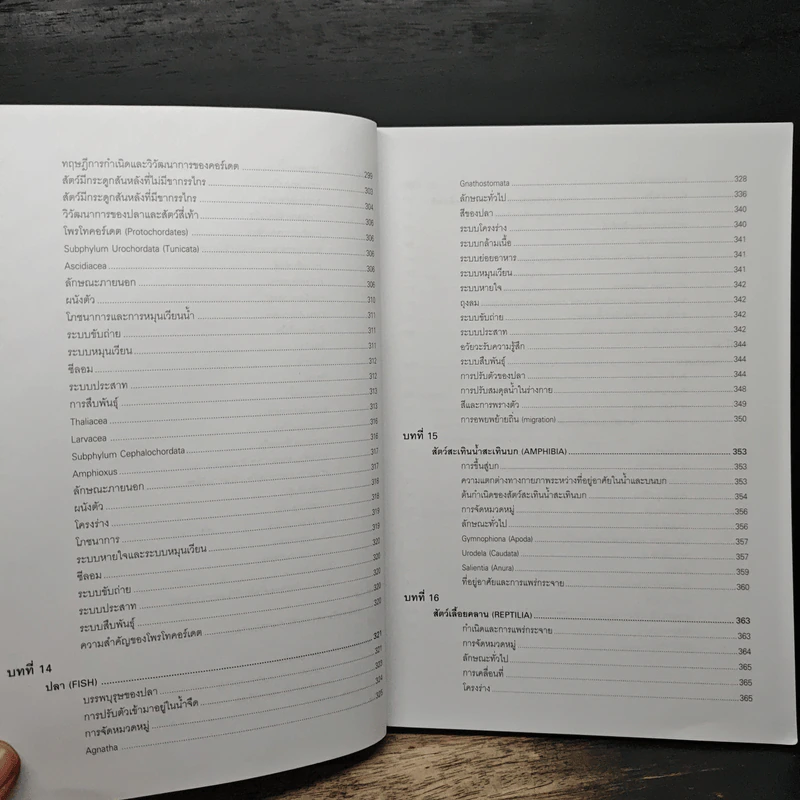 ทฤษฎีการกำเนิดและวิวัฒนาการของคอร์เดต 299
สัตว์มีกระดูกสันหลังที่ไม่มีขากรรไกร 303
สัตว์มีกระดูกสันหลังที่มีขากรรไกร 304
วิวัฒนาการของปลาและสัตว์สี่เท้า 306
โพรโทคอร์เดต (Protochordates) 306
Subphylum Urochordata (Tunicata) 306
Ascidiacea 308
ลักษณะภายนอก 308
ผนังตัว 310
โภชนาการและการหมุนเวียนน้ำ 311
ระบบขับถ่าย 311
ระบบหมุนเวียน 311
ซีลอม 312
ระบบประสาท 312
การสืบพันธุ์ 313
Thaliacea 313
Larvacea 316
Subphylum Cephalochordata 316
Amphioxus 317
ลักษณะภายนอก 317
ผนังตัว 318
โครงร่าง 318
โภชนาการ 319
ระบบหายใจและระบบหมุนเวียน 319
ซีลอม 320
ระบบขับถ่าย 320
ระบบประสาท 320
ระบบสืบพันธุ์ 320
ความสำคัญของโพรโทคอร์เดต
บทที่ 14
ปลา (FISH) 321
บรรพบุรุษของปลา 321
การปรับตัวเข้ามาอยู่ในน้ำจืด 323
การจัดหมวดหมู่ 324
Agnatha 325
Gnathostomata 328
ลักษณะทั่วไป 336
สีของปลา 340
ระบบโครงร่าง 340
ระบบกล้ามเนื้อ 341
ระบบย่อยอาหาร 341
ระบบหมุนเวียน 341
ระบบหายใจ 342
ถุงลม 342
ระบบขับถ่าย 342
ระบบประสาท 342
อวัยวะรับความรู้สึก 344
ระบบสืบพันธุ์ 344
การปรับตัวของปลา 344
การปรับสมดุลน้ำในร่างกาย 348
สีและการพรางตัว 349
การอพยพย้ายถิ่น (migration) 350
บทที่ 15
สัตว์สะเทินน้ำสะเทินบก (AMPHIBIA) 353
การขึ้นสู่บก 353
ความแตกต่างทางกายภาพระหว่างที่อยู่อาศัยในน้ำและบนบก 353
ต้นกำเนิดของสัตว์สะเทินน้ำสะเทินบก 354
การจัดหมวดหมู่ 356
ลักษณะทั่วไป 356
Gymnophiona (Apoda) 357
Urodela (Caudata) 357
Salientia (Anura) 359
ที่อยู่อาศัยและการแพร่กระจาย 360
บทที่ 16
สัตว์เลื้อยคลาน (REPTILIA) 363
กำเนิดและการแพร่กระจาย 363
การจัดหมวดหมู่ 364
ลักษณะทั่วไป 365
การเคลื่อนที่ 365
โครงร่าง 365